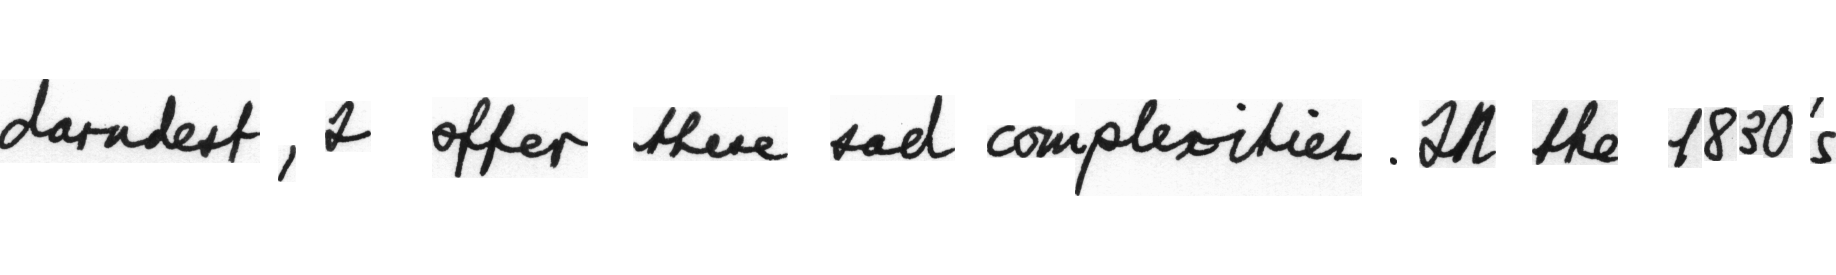 darndest, I offer these sad complexities. In the 1830's